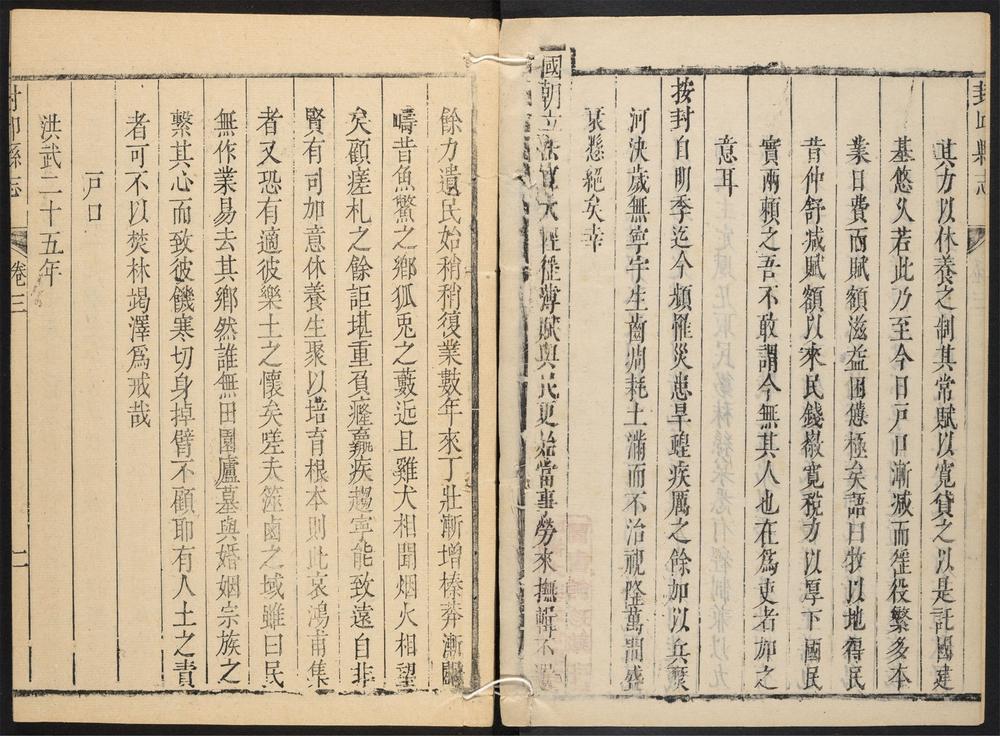 封丘縣志
其方以休養之制其常賦以寬貸之以是託國建
基悠久若此乃至今日戸口漸減而徭役繁多本
業日費而賦額滋益困憊極矣語曰牧以地得民
昔仲舒減賦額以來民錢鏐寛稅力以厚下國民
實兩賴之吾不敢謂今無其人也在爲吏者加之
意耳
按封自明季迄今頻罹災患旱蝗疾厲之餘加以兵燹
河決歲無寧宇生齒凋耗土滿而不治視隆萬間盛
衰懸絕矣幸
國朝立法寬大輕徭薄賦與民更始當事勞來撫輯不遺
餘力遺民始稍稍復業數年來丁壯漸增榛莽漸闢
疇昔魚鱉之鄉狐兎之藪近且雞犬相聞烟火相望
矣顧瘥札之餘詎堪重負癃羸疾趨寧能致遠自非
賢有司加意休養生聚以培育根本則此哀鴻甫集
者又恐有適彼樂土之懷矣嗟夫筮鹵之域雖曰民
無作業易去其鄉然誰無田園廬墓與婚姻宗族之
繫其心而致彼饑寒切身掉臂不顧耶有人土之責
者可不以焚林竭澤爲戒哉
戸口
洪武二十五年
封邱縣志 卷三 二